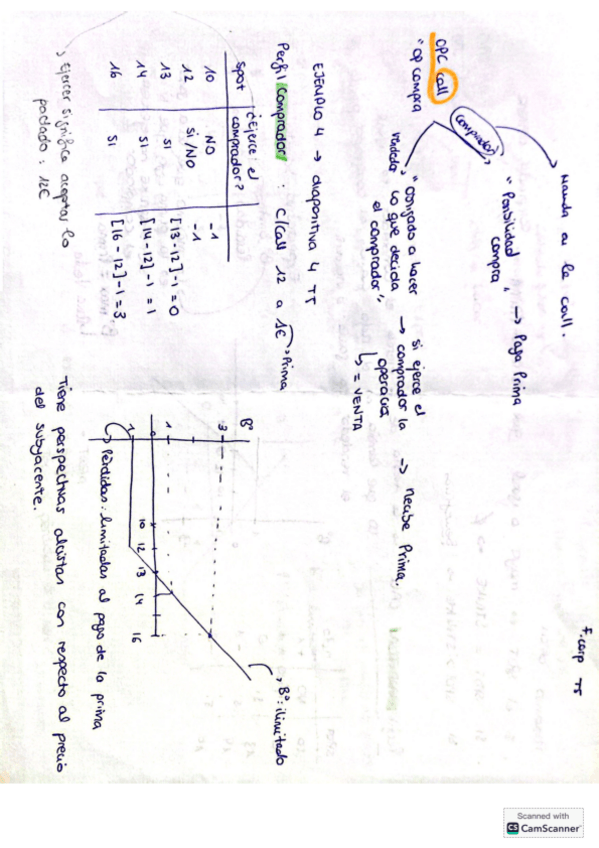 F. corp T5
Manda a la call.
OPC call
"op compra"
comprador
"Posibilidad compra" → Paga Prima
vendedor
"obligado a hacer lo que decida el comprador"
→ si ejerce el comprador la operación
↳ = VENTA
→ Recibe Prima.
EJEMPLO 4 → diapositiva 4 T5
Perfil Comprador : c/call 12 a 1€ → Prima
Spot ¿Ejerce el comprador?
10 NO -1
12 SI/NO -1
13 SI [13-12]-1 = 0
14 SI [14-12]-1 = 1
16 SI [16-12]-1 = 3
→ Ejercer significa aceptar lo
pactado: 12€
Bº
3
1
0
1
10 12 13 14 16
→ Bº: ilimitado
→ Pérdidas: limitadas al pago de la prima
Tiene perspectivas alcistas con respecto al precio
del subyacente.
Scanned with
CS CamScanner